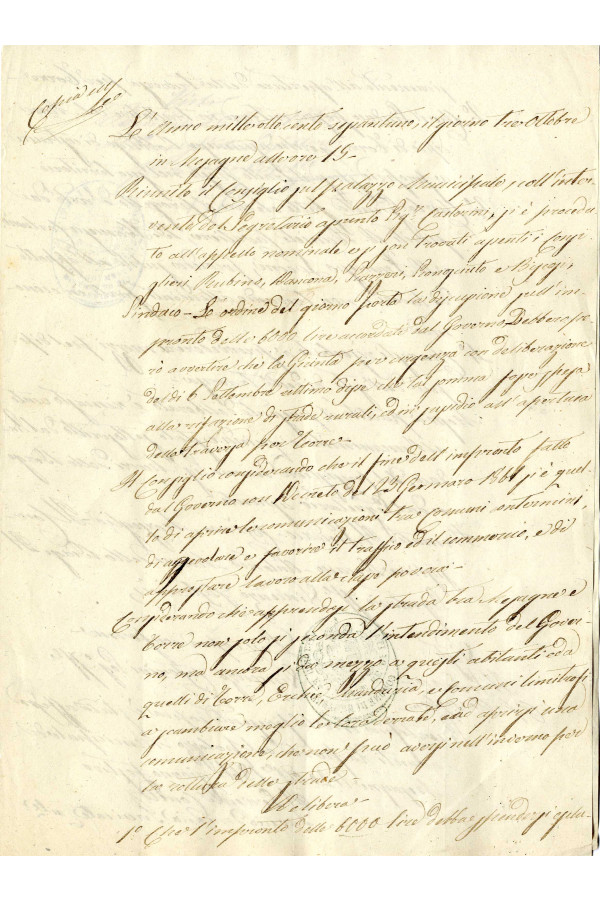 Copia
L'Anno mille otto cento sessantuno, il giorno tre Ottobre
in Mesagne alle ore 15-
Riunito il Consiglio nel palazzo Municipale, coll'inter-
vento del Segretario aggiunto Sig.r Pastorini, si è procedu-
to all'appello nominale e si son trovati assenti i Consi-
glieri Rubino, Marcona, Scazzeri, Pronquinto e
Sindaco - L'ordine del giorno porta la discussione sull'im-
pronto delle 6000 lire accordate dal Governo. Debbo pe-
rò avvertire che la Giunta per urgenza con deliberazione
de' di 6 Settembre ultimo disse che la prima fosse spesa
alla rifazione di strade rurali, ed in sussidio all'apertura
della traversa per Torre-
Il Consiglio considerando che il fine dell'impronto fatto
dal Governo con Decreto del 23 Gennaro 1861 si è quel-
lo di aprire le comunicazioni tra comuni
di agevolare e favorire il traffico ed il commercio, e di
apprestare lavoro alla classe povera-
Considerando che apprendosi la strada tra Mesagne e
Torre non solo si seconda l'intendimento del Gover-
no, ma ancora si dà mezzo a questi abitanti ed a
quelli di Torre, Erchie, Manduria, e comuni limitrofi
a scambiare meglio le loro derrate, ed ad aprirsi una
comunicazione, che non può aversi nell'inverno per
la rottura delle strade-
Delibera-
1.º Che l'impronto delle 6000 lire debba spendersi